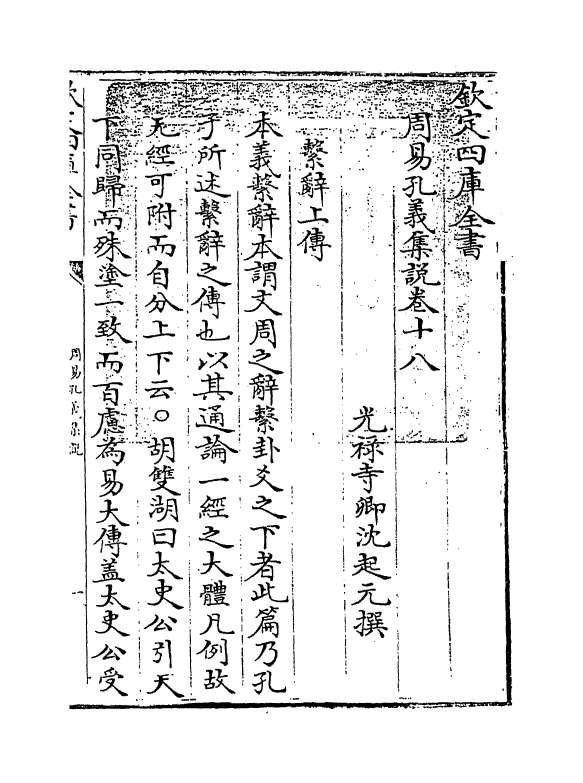 欽定四庫全書
周易孔義集說卷十八
光祿寺卿沈起元撰
繫辭上傳
本義繫辭本謂文周之辭繫卦爻之下者此篇乃孔
子所述繫辭之傳也以其通論一經之大體凡例故
无經可附而自分上下云○胡雙湖曰太史公引天
下同歸而殊塗一致而百慮為易大傳蓋太史公受
周易孔義集說
一